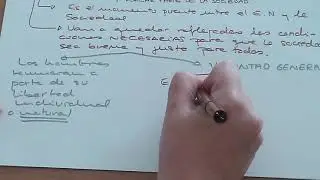 PARTE DE LA SOCIEDAD
Es el momento puente entre el E.N y la
Sociedad
Van a quedar reflejadas las condi-
ciones NECESARIAS para que la sociedad
sea buena y justa para todos.
Los hombres
renuncian a
parte de su
libertad
individual
o natural
VOLUNTAD GENERAL
E